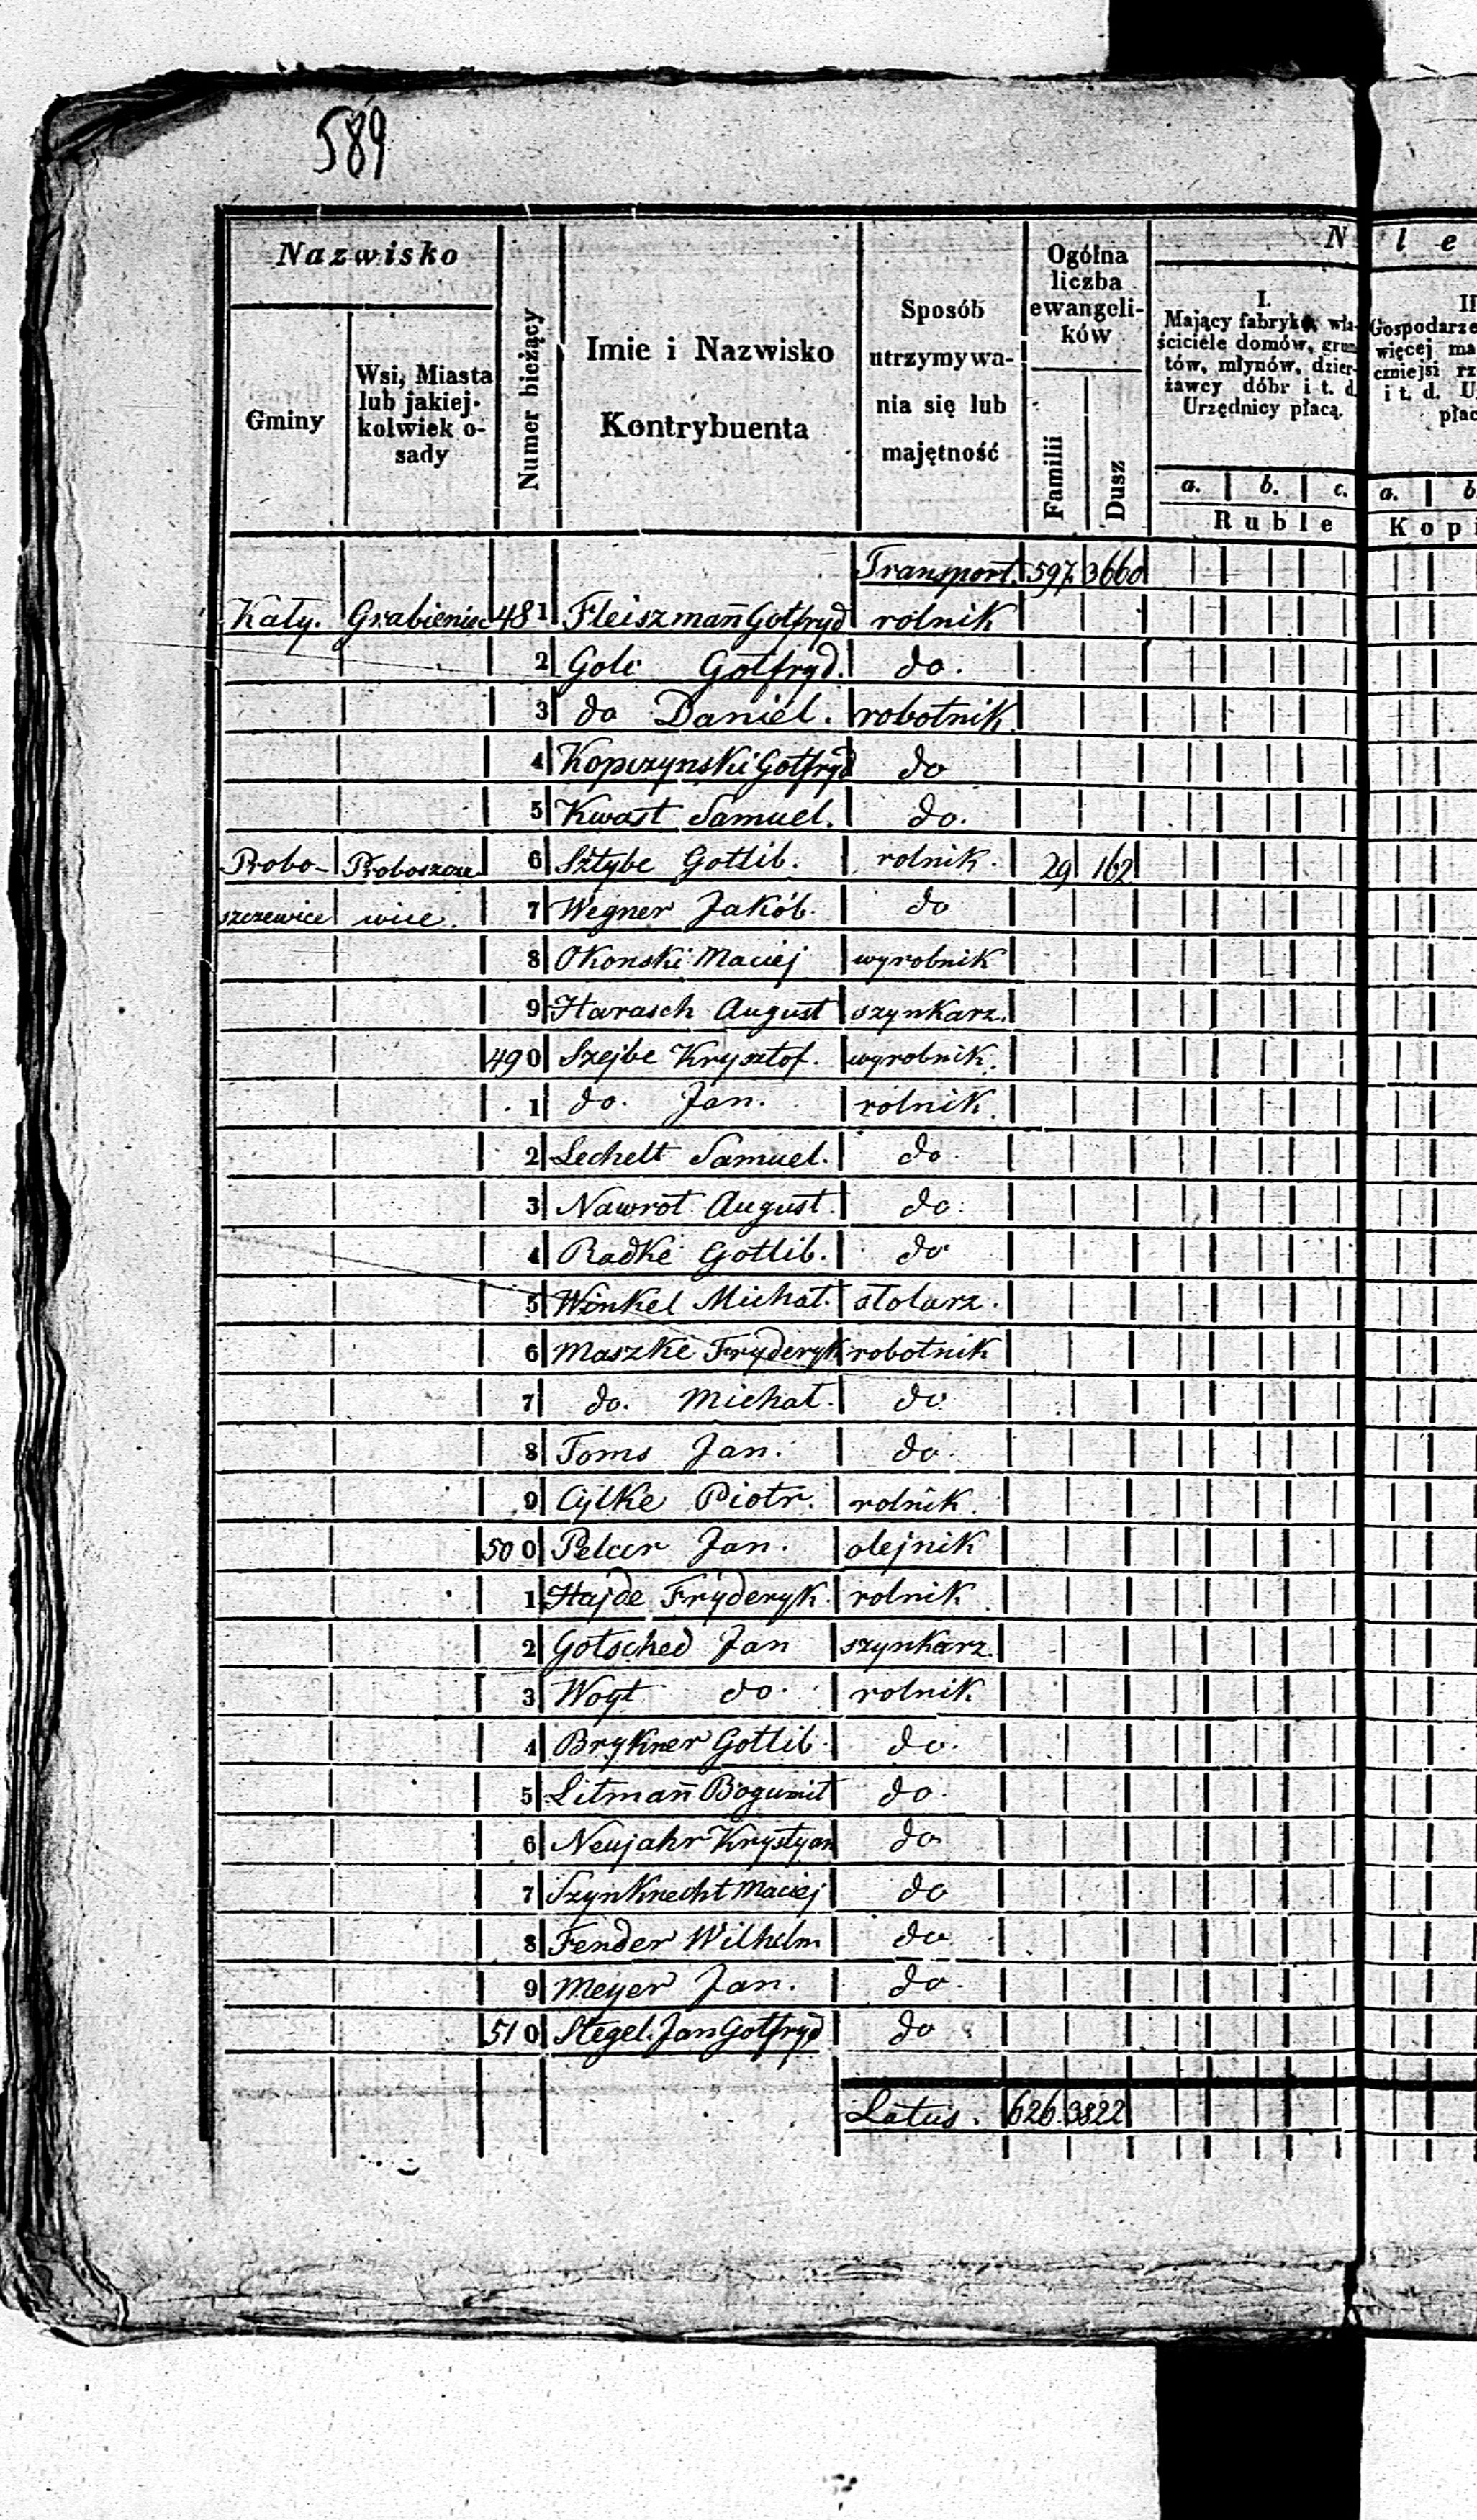 589
Nazwisko
Gminy
Wsi, Miasta
lub jakiej-
kolwiek o-
sady
Numer bieżący
Imie i Nazwisko
Kontrybuenta
Sposób
utrzymywa-
nia się lub
majętność
Ogólna
liczba
ewangeli-
ków
Familii
Dusz
N l e
I.
Mający fabryk, wła-
ściciele domów, grun
tów, młynów, dzier-
żawcy dóbr i t. d.
Urzędnicy płacą.
a. b. c.
Ruble
II
Gospodarze
więcej ma
czniejsi rz
i t. d. U
płac
a. b
Kopi
Transport. 597 3660
Kały. Grabieniec 481 Fleiszmañ Gotfryd rolnik
2 Golc Gotfryd. do.
3 do Daniel. robotnik
4 Kopczynski Gotfryd do
5 Kwast Samuel. do.
Probo- Proboszcze 6 Sztybe Gottlib. rolnik. 29 162
szczewice wice. 7 Wegner Jakób. do
8 Okonski Maciej wyrobnik
9 Harasch August szynkarz.
490 Szejbe Krysztof. wyrobnik.
1 do. Jan. rolnik.
2 Lechelt Samuel. do.
3 Nawrot August. do.
4 Radke Gottlib. do
5 Winkel Michał. stolarz.
6 Maszke Fryderyk robotnik
7 do. Michał. do
8 Toms Jan. do.
9 Cylke Piotr. rolnik.
500 Pelcer Jan. olejnik
1 Hajde Fryderyk. rolnik
2 Gotsched Jan szynkarz.
3 Wogt do. rolnik
4 Brykner Gottlib. do.
5 Litmañ Bogumił do.
6 Neujahr Krystyan do
7 Szynknecht Maciej do
8 Fender Wilhelm do
9 Meyer Jan. do.
510 Stegel. Jan Gotfryd do
Latus. 626 3822